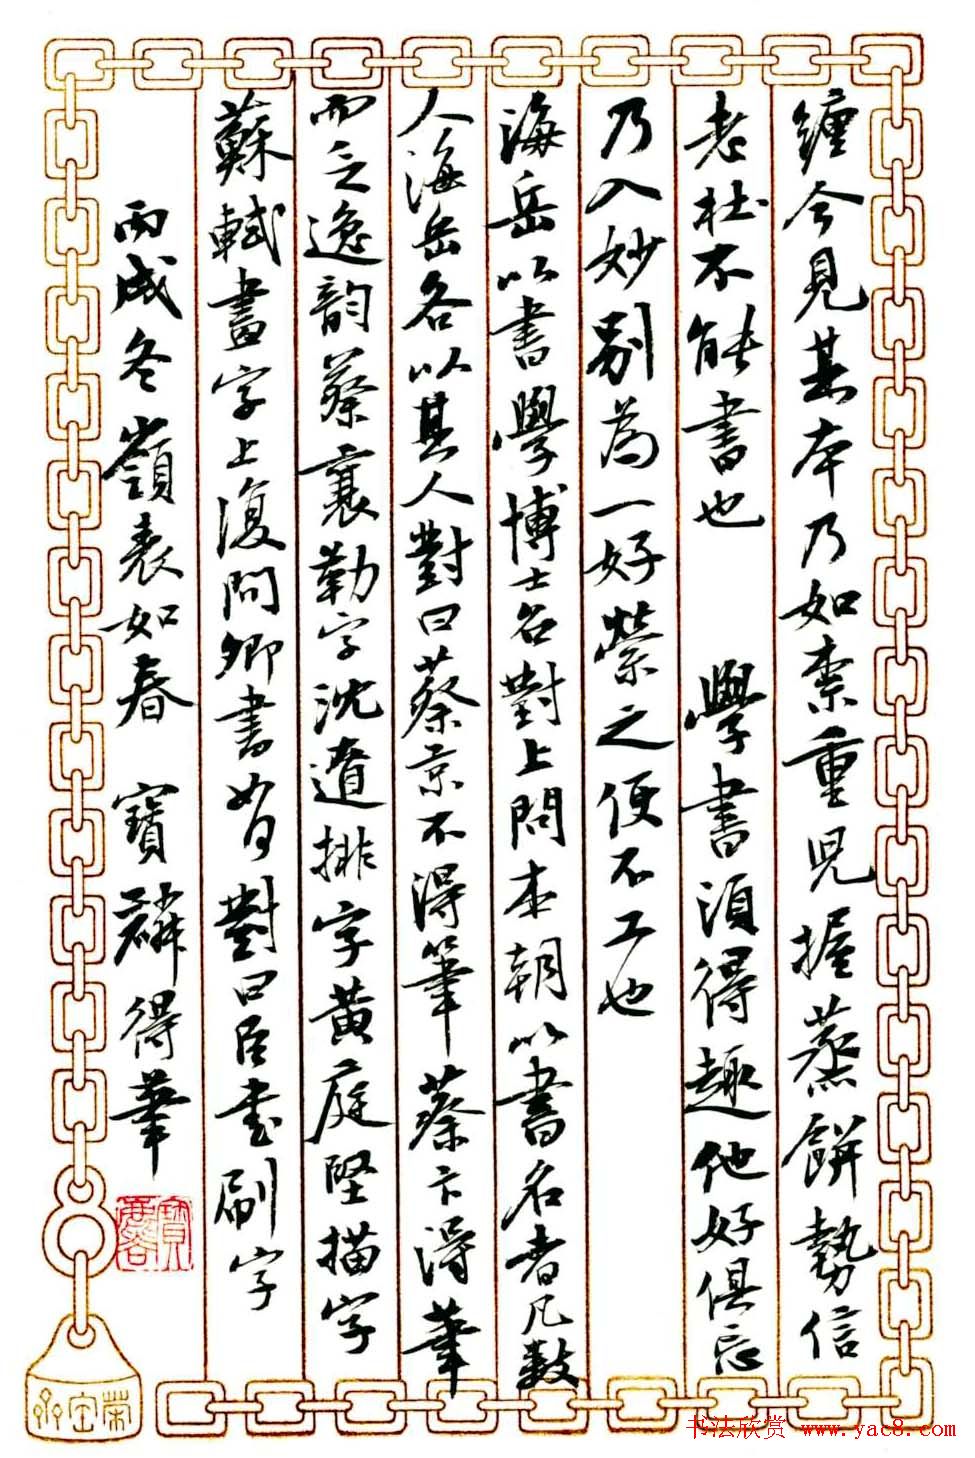 纏今見其本乃如柰重兒握蒸餅勢信
老杜不能書也 學書須得趣他好俱忘
乃入妙別為一好縈之便不工也
海岳以書學博士召對上問本朝以書名者凡數
人海岳各以其人對曰蔡京不得筆蔡卞得筆
而乏逸韻蔡襄勒字沈遼排字黃庭堅描字
蘇軾畫字上復問卿書如何對曰臣書刷字
丙戌冬嶺表如春 寶麟得筆
书法欣赏 www.yac8.com